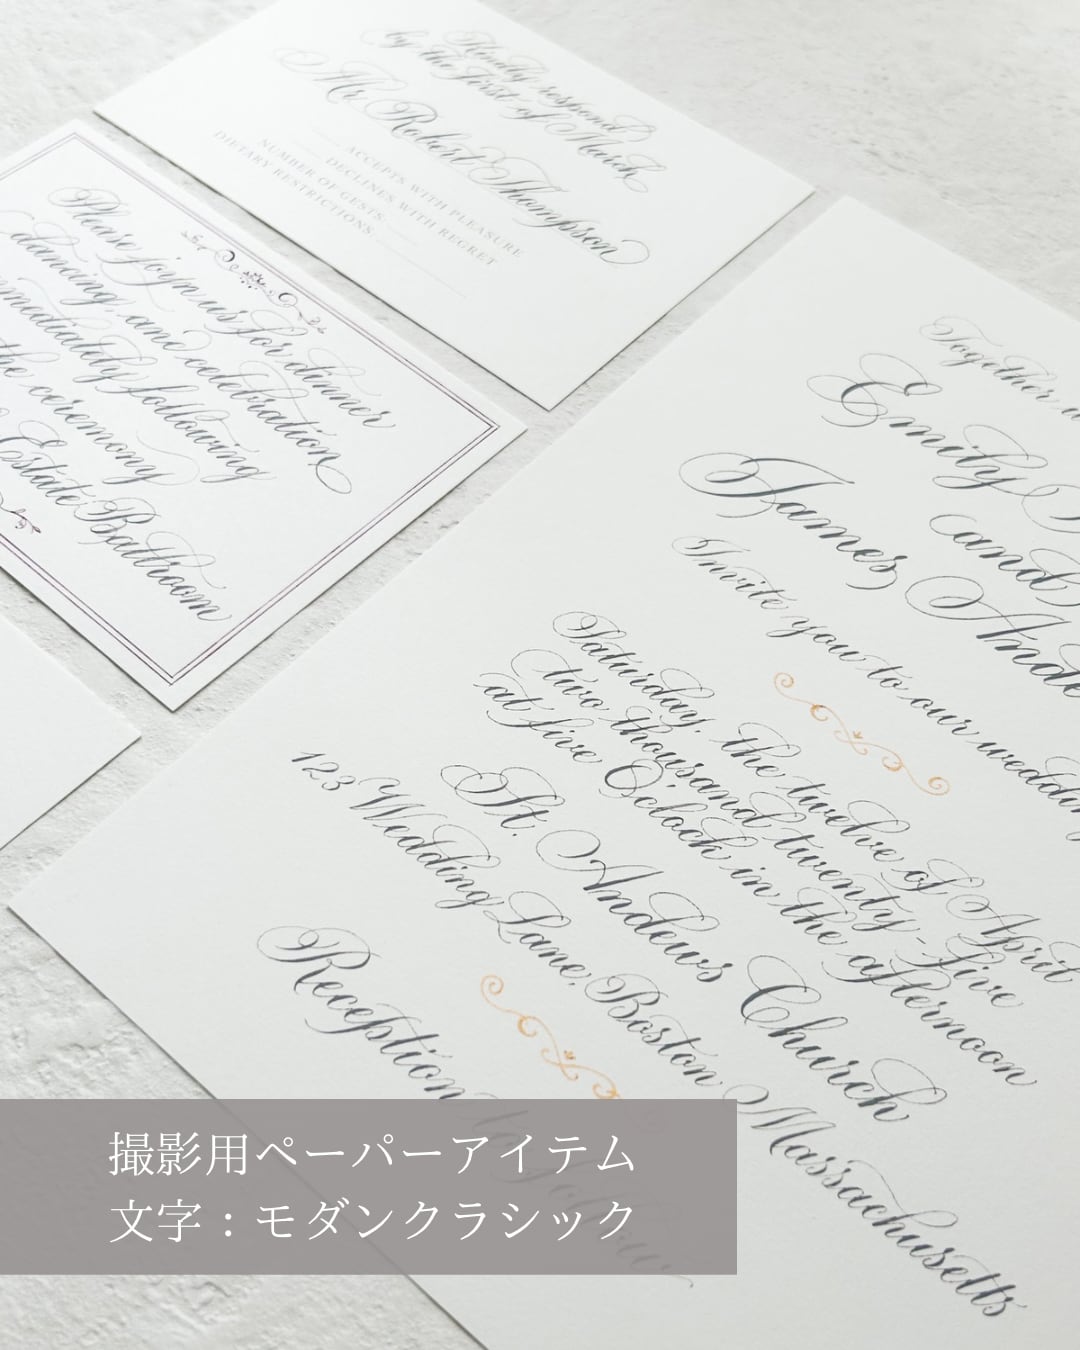 Kindly respond
by the First of March
Mr. Robert Thompson
ACCEPTS WITH PLEASURE
DECLINES WITH REGRET
NUMBER OF GESTS
DIETARY RESTRICTIONS
Please joyn us for dinner
dancing, and celebration
following
the ceremony
Estate Ballroom
Together
Emily
and
James
Invite you to our wedding
Saturday, the twelve of April
two thousand twenty-five
at five O'clock in the afternoon
St. Andews Church
123 Wedding Lane, Boston Massachusetts
Reception to follow
撮影用ペーパーアイテム
文字：モダンクラシック